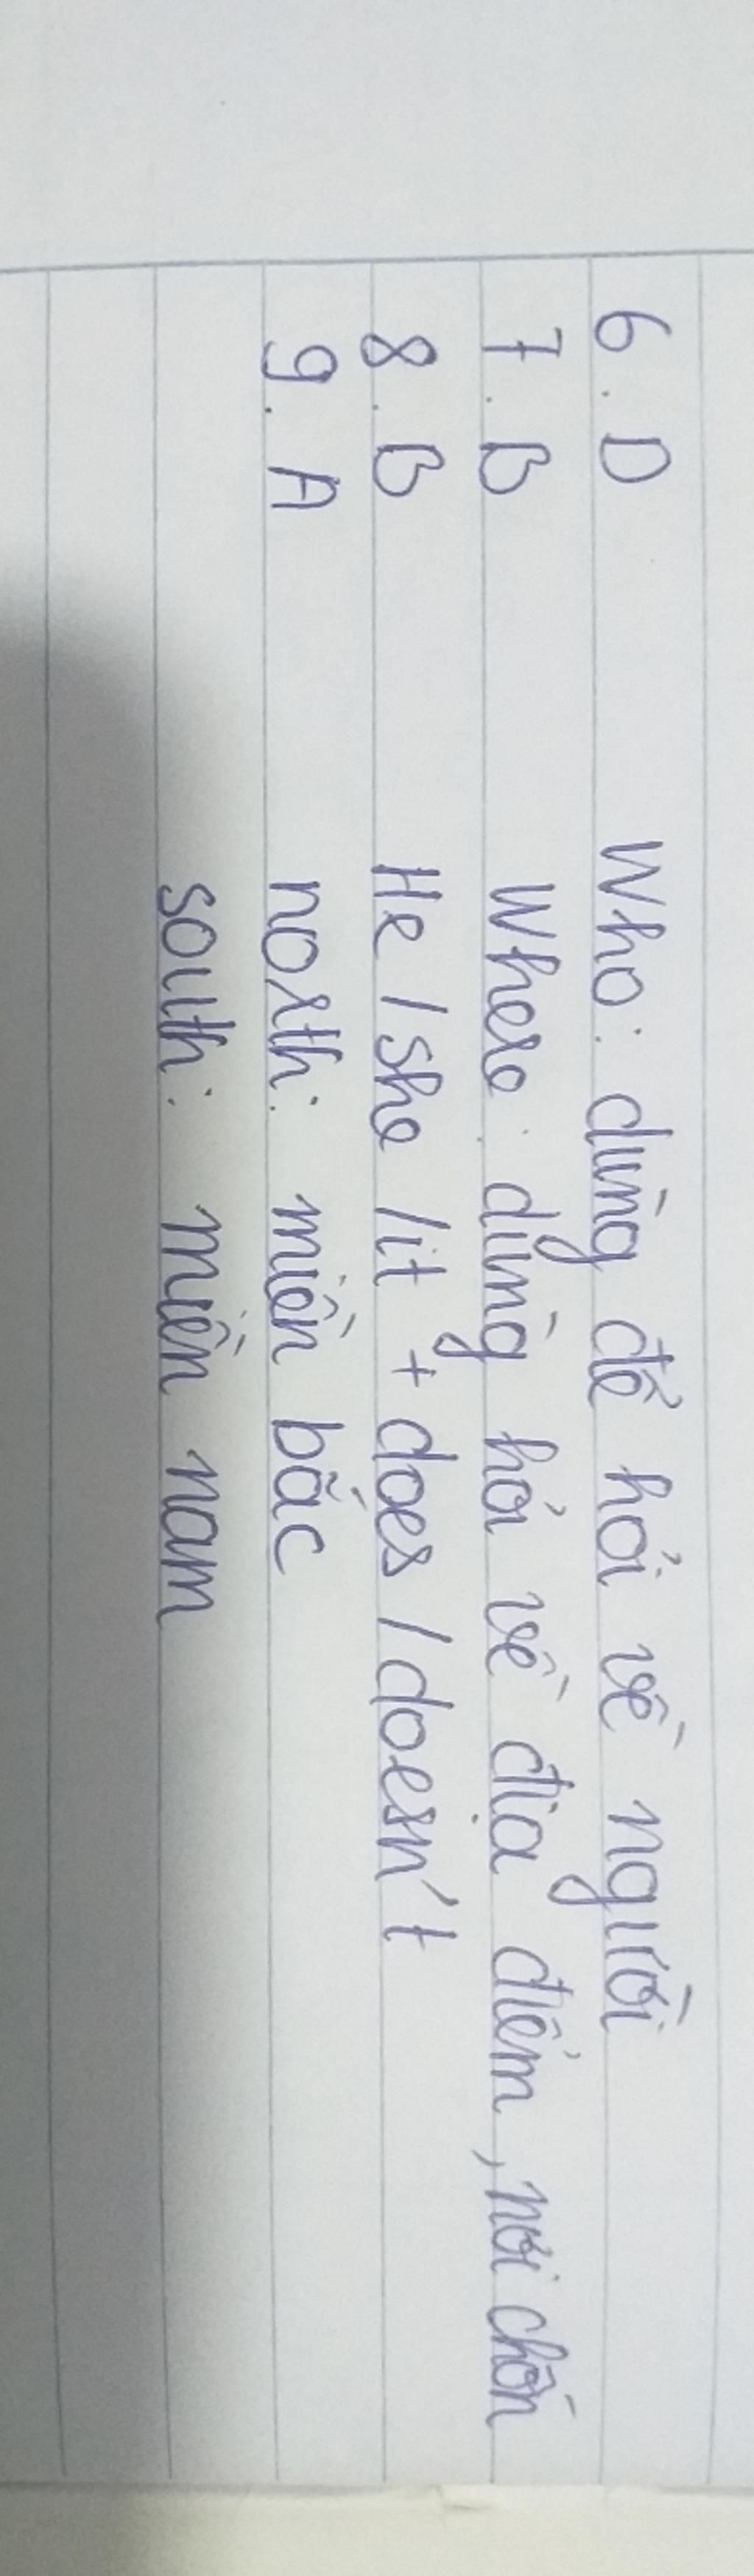 6. D Who: dùng để hỏi về người
7. B Where: dùng hỏi về địa điểm, nơi chốn
8. B He / she / it + does / doesn't
9. A north: miền bắc
south: miền nam